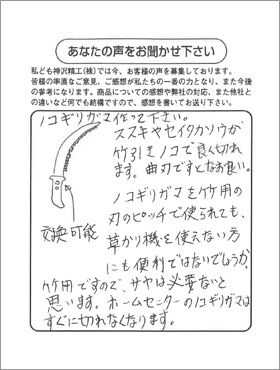 あなたの声をお聞かせ下さい
私ども神沢精工(株)では今、お客様の声を募集しております。
皆様の率直なご意見、ご感想が私たちの一番の力となり、また今後
の参考になります。商品についての感想や弊社の対応、また他社と
の違いなど何でも結構ですので、感想を書いてお送り下さい。
ノコギリガマ作って下さい。
ススキやセイタカソウが
竹引きノコで良く切れ
ます。曲刃ですとなお良い。
ノコギリガマを竹用の
刃のピッチで使られても、
草かり機を使えない方
にも便利ではないでしょうか。
交換可能
竹用ですので、サヤは必要ないと
思います。ホームセンターのノコギリガマは
すぐに切れなくなります。